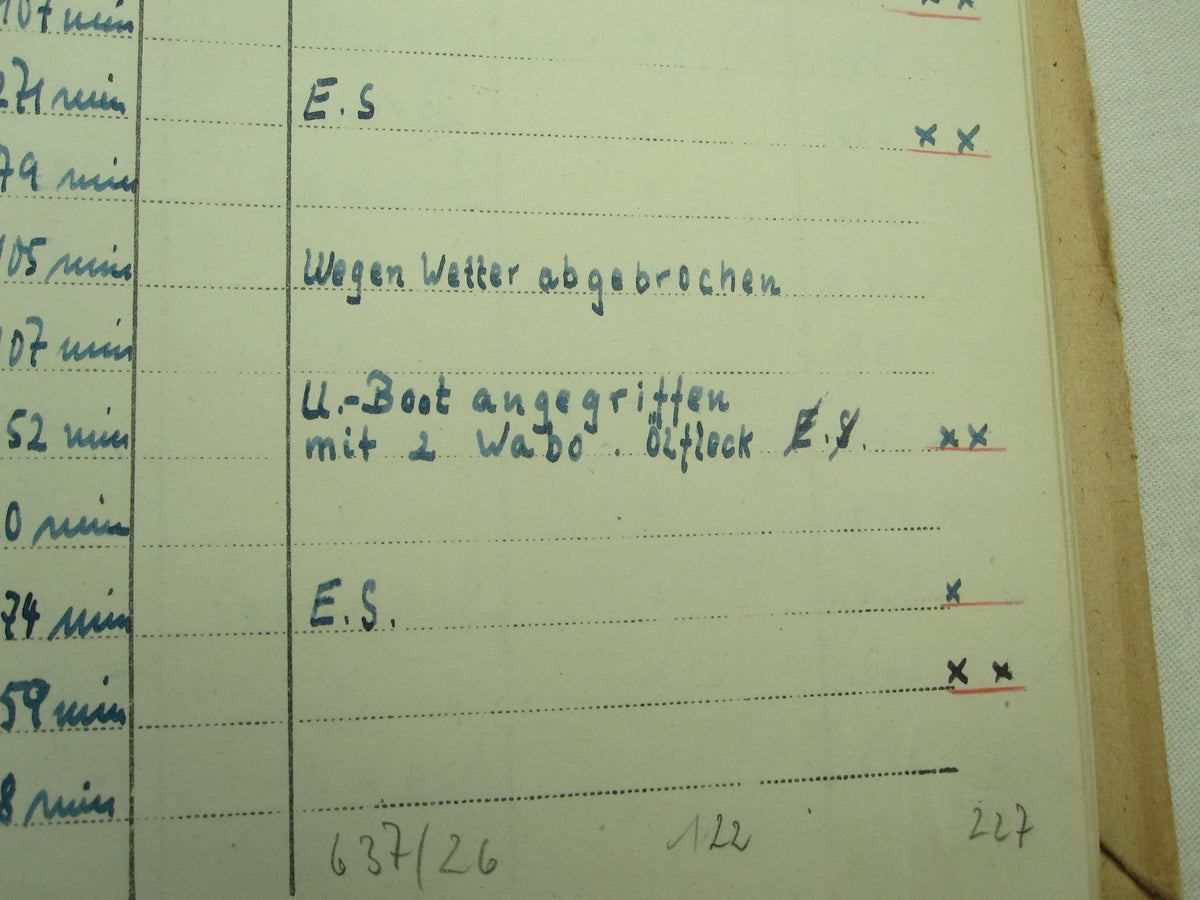 107 min
x x
271 min E.S
x x
79 min
105 min Wegen Wetter abgebrochen
107 min
U.-Boot angegriffen
52 min mit 2 Wabo. Ölfleck E.S. xx
0 min
74 min E.S. x
59 min x x
8 min
637/26 122 227